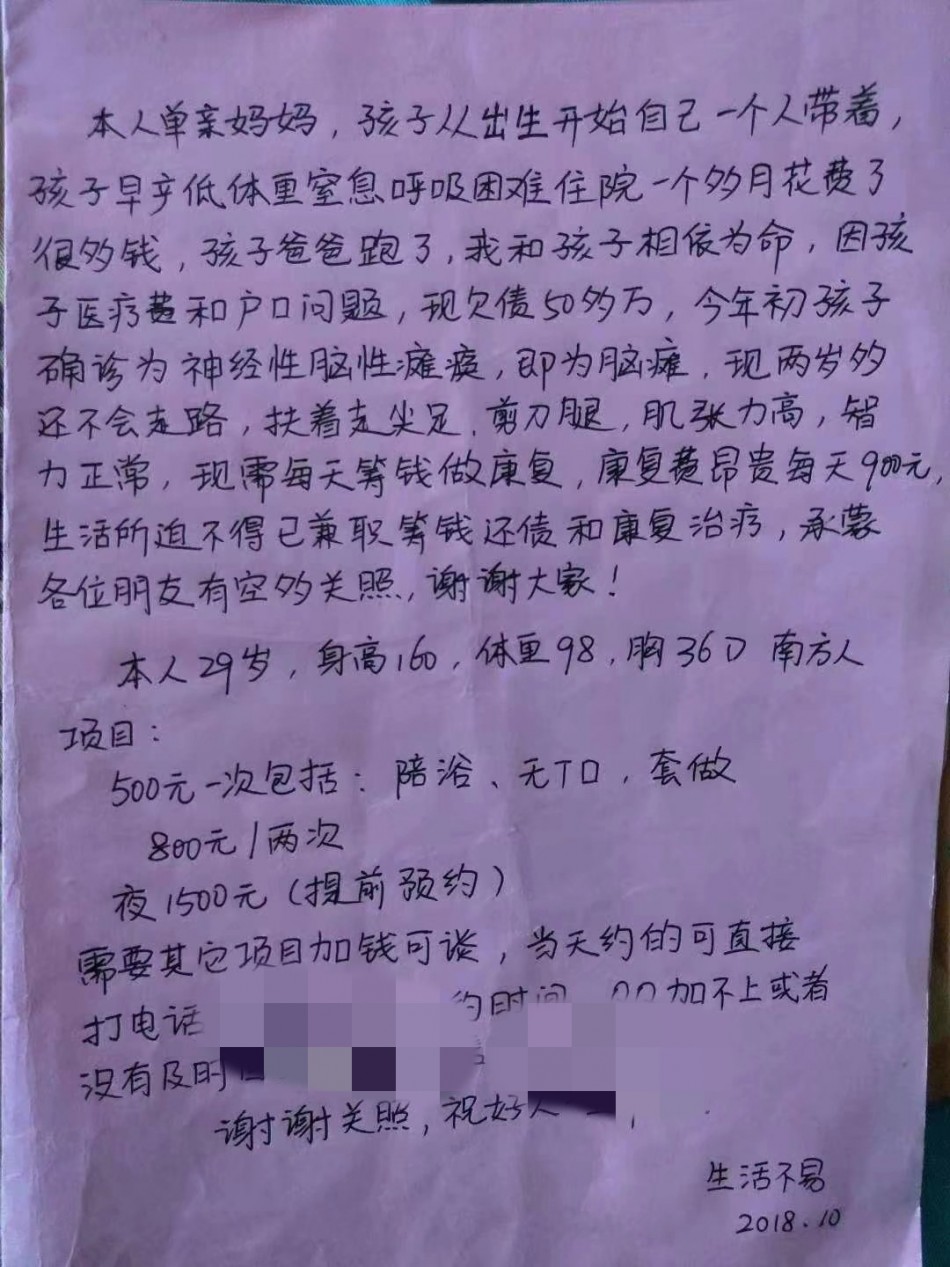 本人单亲妈妈，孩子从出生开始自己一个人带着，
孩子早产低体重窒息呼吸困难住院一个多月花费了
很多钱，孩子爸爸跑了，我和孩子相依为命，因孩
子医疗费和户口问题，现欠债50多万，今年初孩子
确诊为神经性脑性瘫痪，即为脑瘫，现两岁多
还不会走路，扶着走尖足、剪刀腿，肌张力高，智
力正常，现需每天筹钱做康复，康复费昂贵每天900元，
生活所迫不得已兼职筹钱还债和康复治疗，承蒙
各位朋友有空多关照，谢谢大家！
本人29岁，身高160，体重98，胸36D 南方人
项目：
500元一次包括：陪浴、无TD，套做
800元/两次
夜1500元（提前预约）
需要其它项目加钱可谈，当天约的可直接
打电话 约时间 QQ加不上或者
没有及时
谢谢关照，祝好人
生活不易
2018.10